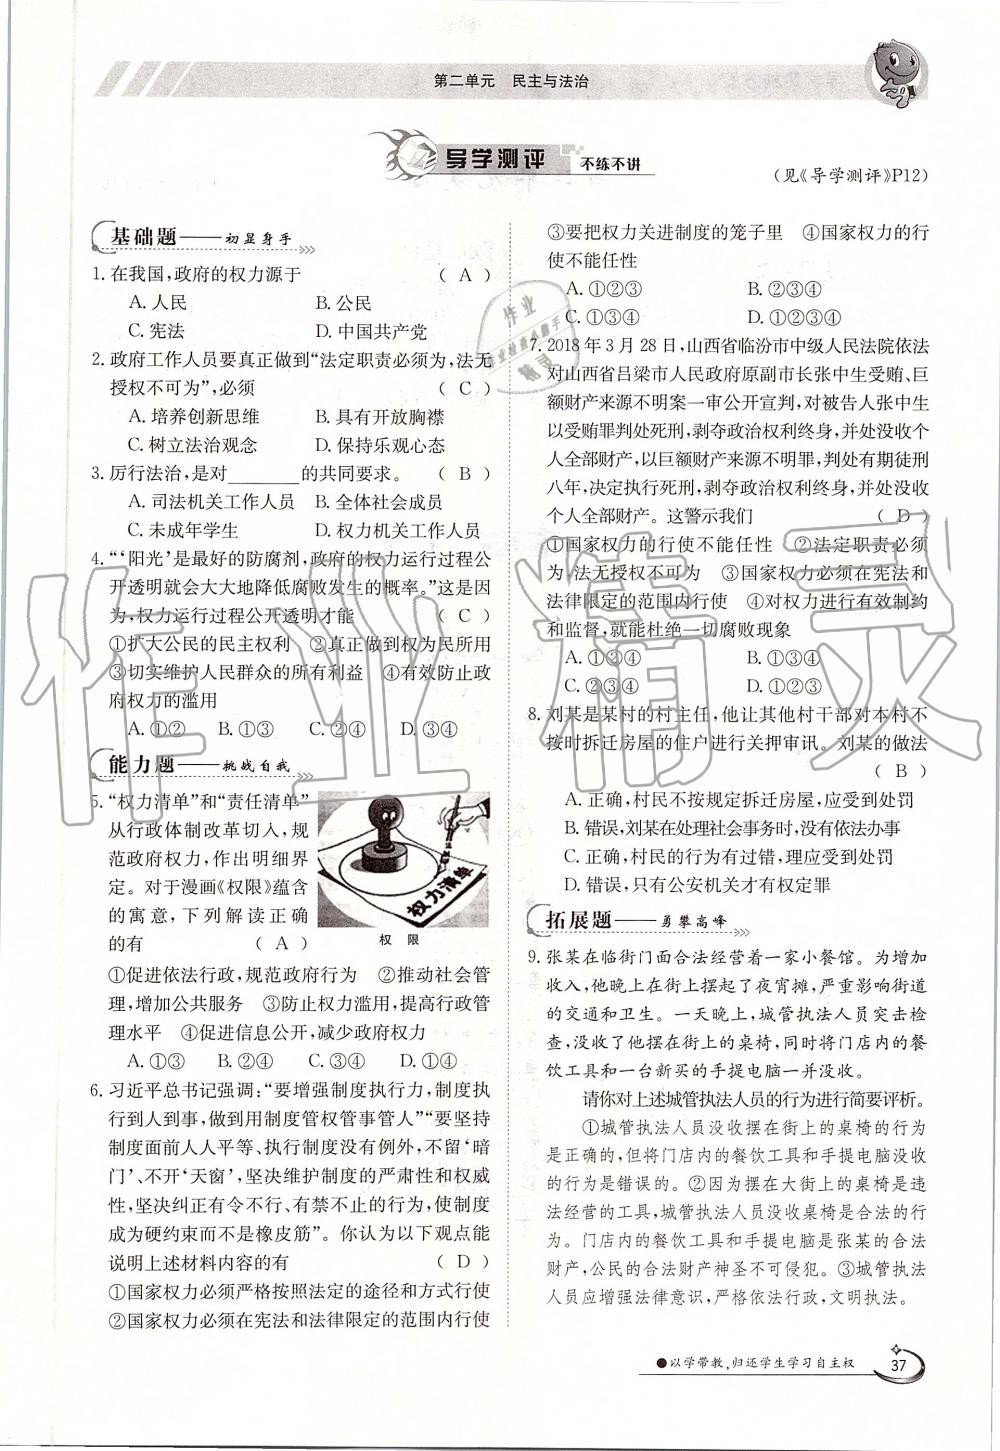 第二单元　民主与法治
导学测评 不练不讲
(见《导学测评》P12)
基础题——初显身手
1. 在我国,政府的权力源于 ( A )
A. 人民 B. 公民
C. 宪法 D. 中国共产党
2. 政府工作人员要真正做到“法定职责必须为,法无
授权不可为”,必须 ( C )
A. 培养创新思维 B. 具有开放胸襟
C. 树立法治观念 D. 保持乐观心态
3. 厉行法治,是对________的共同要求。 ( B )
A. 司法机关工作人员 B. 全体社会成员
C. 未成年学生 D. 权力机关工作人员
4. “‘阳光’是最好的防腐剂,政府的权力运行过程公
开透明就会大大地降低腐败发生的概率。”这是因
为,权力运行过程公开透明才能 ( C )
①扩大公民的民主权利　②真正做到权为民所用
③切实维护人民群众的所有利益　④有效防止政
府权力的滥用
A. ①② B. ①③ C. ②④ D. ③④
能力题——挑战自我
5. “权力清单”和“责任清单”
从行政体制改革切入,规
范政府权力,作出明细界
定。对于漫画《权限》蕴含
的寓意,下列解读正确
的有 ( A )
权力清单
权　限
①促进依法行政,规范政府行为　②推动社会管
理,增加公共服务　③防止权力滥用,提高行政管
理水平　④促进信息公开,减少政府权力
A. ①③ B. ②④ C. ③④ D. ①④
6. 习近平总书记强调:“要增强制度执行力,制度执
行到人到事,做到用制度管权管事管人”“要坚持
制度面前人人平等、执行制度没有例外,不留‘暗
门’、不开‘天窗’,坚决维护制度的严肃性和权威
性,坚决纠正有令不行、有禁不止的行为,使制度
成为硬约束而不是橡皮筋”。你认为以下观点能
说明上述材料内容的有 ( D )
①国家权力必须严格按照法定的途径和方式行使
②国家权力必须在宪法和法律限定的范围内行使
③要把权力关进制度的笼子里　④国家权力的行
使不能任性
A. ①②③ B. ②③④
C. ①③④ D. ①②③④
7. 2018 年 3 月 28 日,山西省临汾市中级人民法院依法
对山西省吕梁市人民政府原副市长张中生受贿、巨
额财产来源不明案一审公开宣判,对被告人张中生
以受贿罪判处死刑,剥夺政治权利终身,并处没收个
人全部财产,以巨额财产来源不明罪,判处有期徒刑
八年,决定执行死刑,剥夺政治权利终身,并处没收
个人全部财产。这警示我们 ( D )
①国家权力的行使不能任性　②法定职责必须
为 法无授权不可为　③国家权力必须在宪法和
法律限定的范围内行使　④对权力进行有效制约
和监督,就能杜绝一切腐败现象
A. ①②④ B. ①③④
C. ②③④ D. ①②③
8. 刘某是某村的村主任,他让其他村干部对本村不
按时拆迁房屋的住户进行关押审讯。刘某的做法
( B )
A. 正确,村民不按规定拆迁房屋,应受到处罚
B. 错误,刘某在处理社会事务时,没有依法办事
C. 正确,村民的行为有过错,理应受到处罚
D. 错误,只有公安机关才有权定罪
拓展题——勇攀高峰
9. 张某在临街门面合法经营着一家小餐馆。为增加
收入,他晚上在街上摆起了夜宵摊,严重影响街道
的交通和卫生。一天晚上,城管执法人员突击检
查,没收了他摆在街上的桌椅,同时将门店内的餐
饮工具和一台新买的手提电脑一并没收。
请你对上述城管执法人员的行为进行简要评析。
①城管执法人员没收摆在街上的桌椅的行为
是正确的,但将门店内的餐饮工具和手提电脑没收
的行为是错误的。②因为摆在大街上的桌椅是违
法经营的工具,城管执法人员没收桌椅是合法的行
为。门店内的餐饮工具和手提电脑是张某的合法
财产,公民的合法财产神圣不可侵犯。③城管执法
人员应增强法律意识,严格依法行政,文明执法。
●以学带教,归还学生学习自主权
37
作业精灵